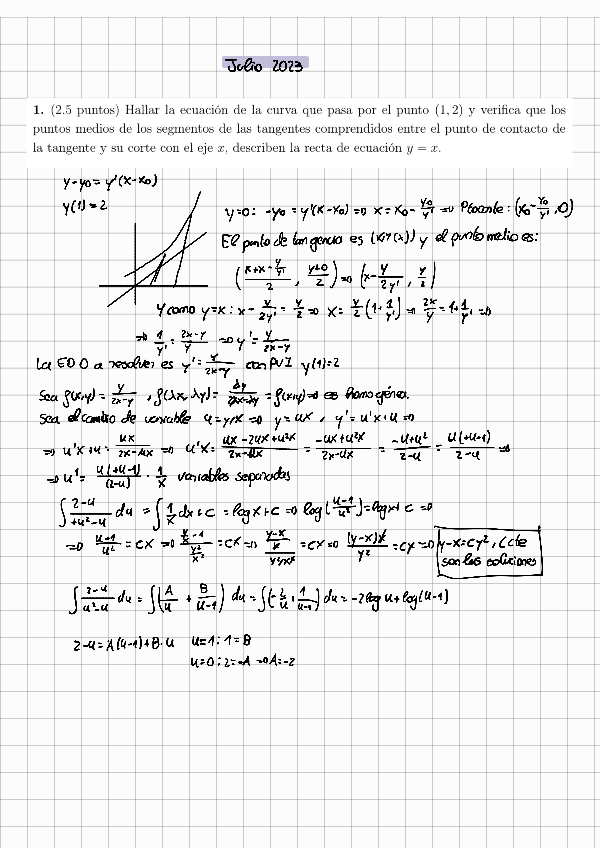 Julio 2023
1. (2.5 puntos) Hallar la ecuación de la curva que pasa por el punto (1, 2) y verifica que los
puntos medios de los segmentos de las tangentes comprendidos entre el punto de contacto de
la tangente y su corte con el eje x, describen la recta de ecuación y = x.
y-y₀ = y'(x-x₀)
y(1) = 2
y=0: -y₀ = y'(x-x₀) ⇒ x = x₀ - y₀/y' ⇒ P corte: (x₀ - y₀/y', 0)
El punto de tangencia es (x,y(x)) y el punto medio es:
((x+x-y/y')/2 , (y+0)/2) ⇒ (x - y/2y' , y/2)
Y como y=x : x - y/2y' = y/2 ⇒ x = y/2 (1+1/y') ⇒ 2x/y = 1+1/y' ⇒
⇒ 1/y' = (2x-y)/y ⇒ y' = y/(2x-y)
La EDO a resolver es y' = y/(2x-y) con PVI y(1)=2
Sea f(x,y) = y/(2x-y) , f(λx, λy) = λy/(2λx-λy) = f(x,y) ⇒ es homogénea.
Sea el cambio de variable u = y/x ⇒ y = ux , y' = u'x+u ⇒
⇒ u'x+u = ux/(2x-ux) ⇒ u'x = (ux-2ux+u²x)/(2x-ux) = (-ux+u²x)/(2x-ux) = (-u+u²)/(2-u) = u(+u-1)/(2-u) ⇒
⇒ u' = u(+u-1)/(2-u) · 1/x variables separadas
∫ (2-u)/(+u²-u) du = ∫ 1/x dx + c = log x + c ⇒ log((u-1)/u²) = log x + c ⇒
⇒ (u-1)/u² = cx ⇒ (y/x - 1)/(y²/x²) = cx ⇒ ((y-x)/x)/(y²/x²) = cx ⇒ (y-x)x/y² = cx ⇒ y-x = cy², c cte
son las soluciones
∫ (2-u)/(u²-u) du = ∫ (A/u + B/(u-1)) du = ∫ (-2/u + 1/(u-1)) du = -2 log u + log(u-1)
2-u = A(u-1)+B·u u=1 : 1=B
u=0 : 2=-A ⇒ A=-2